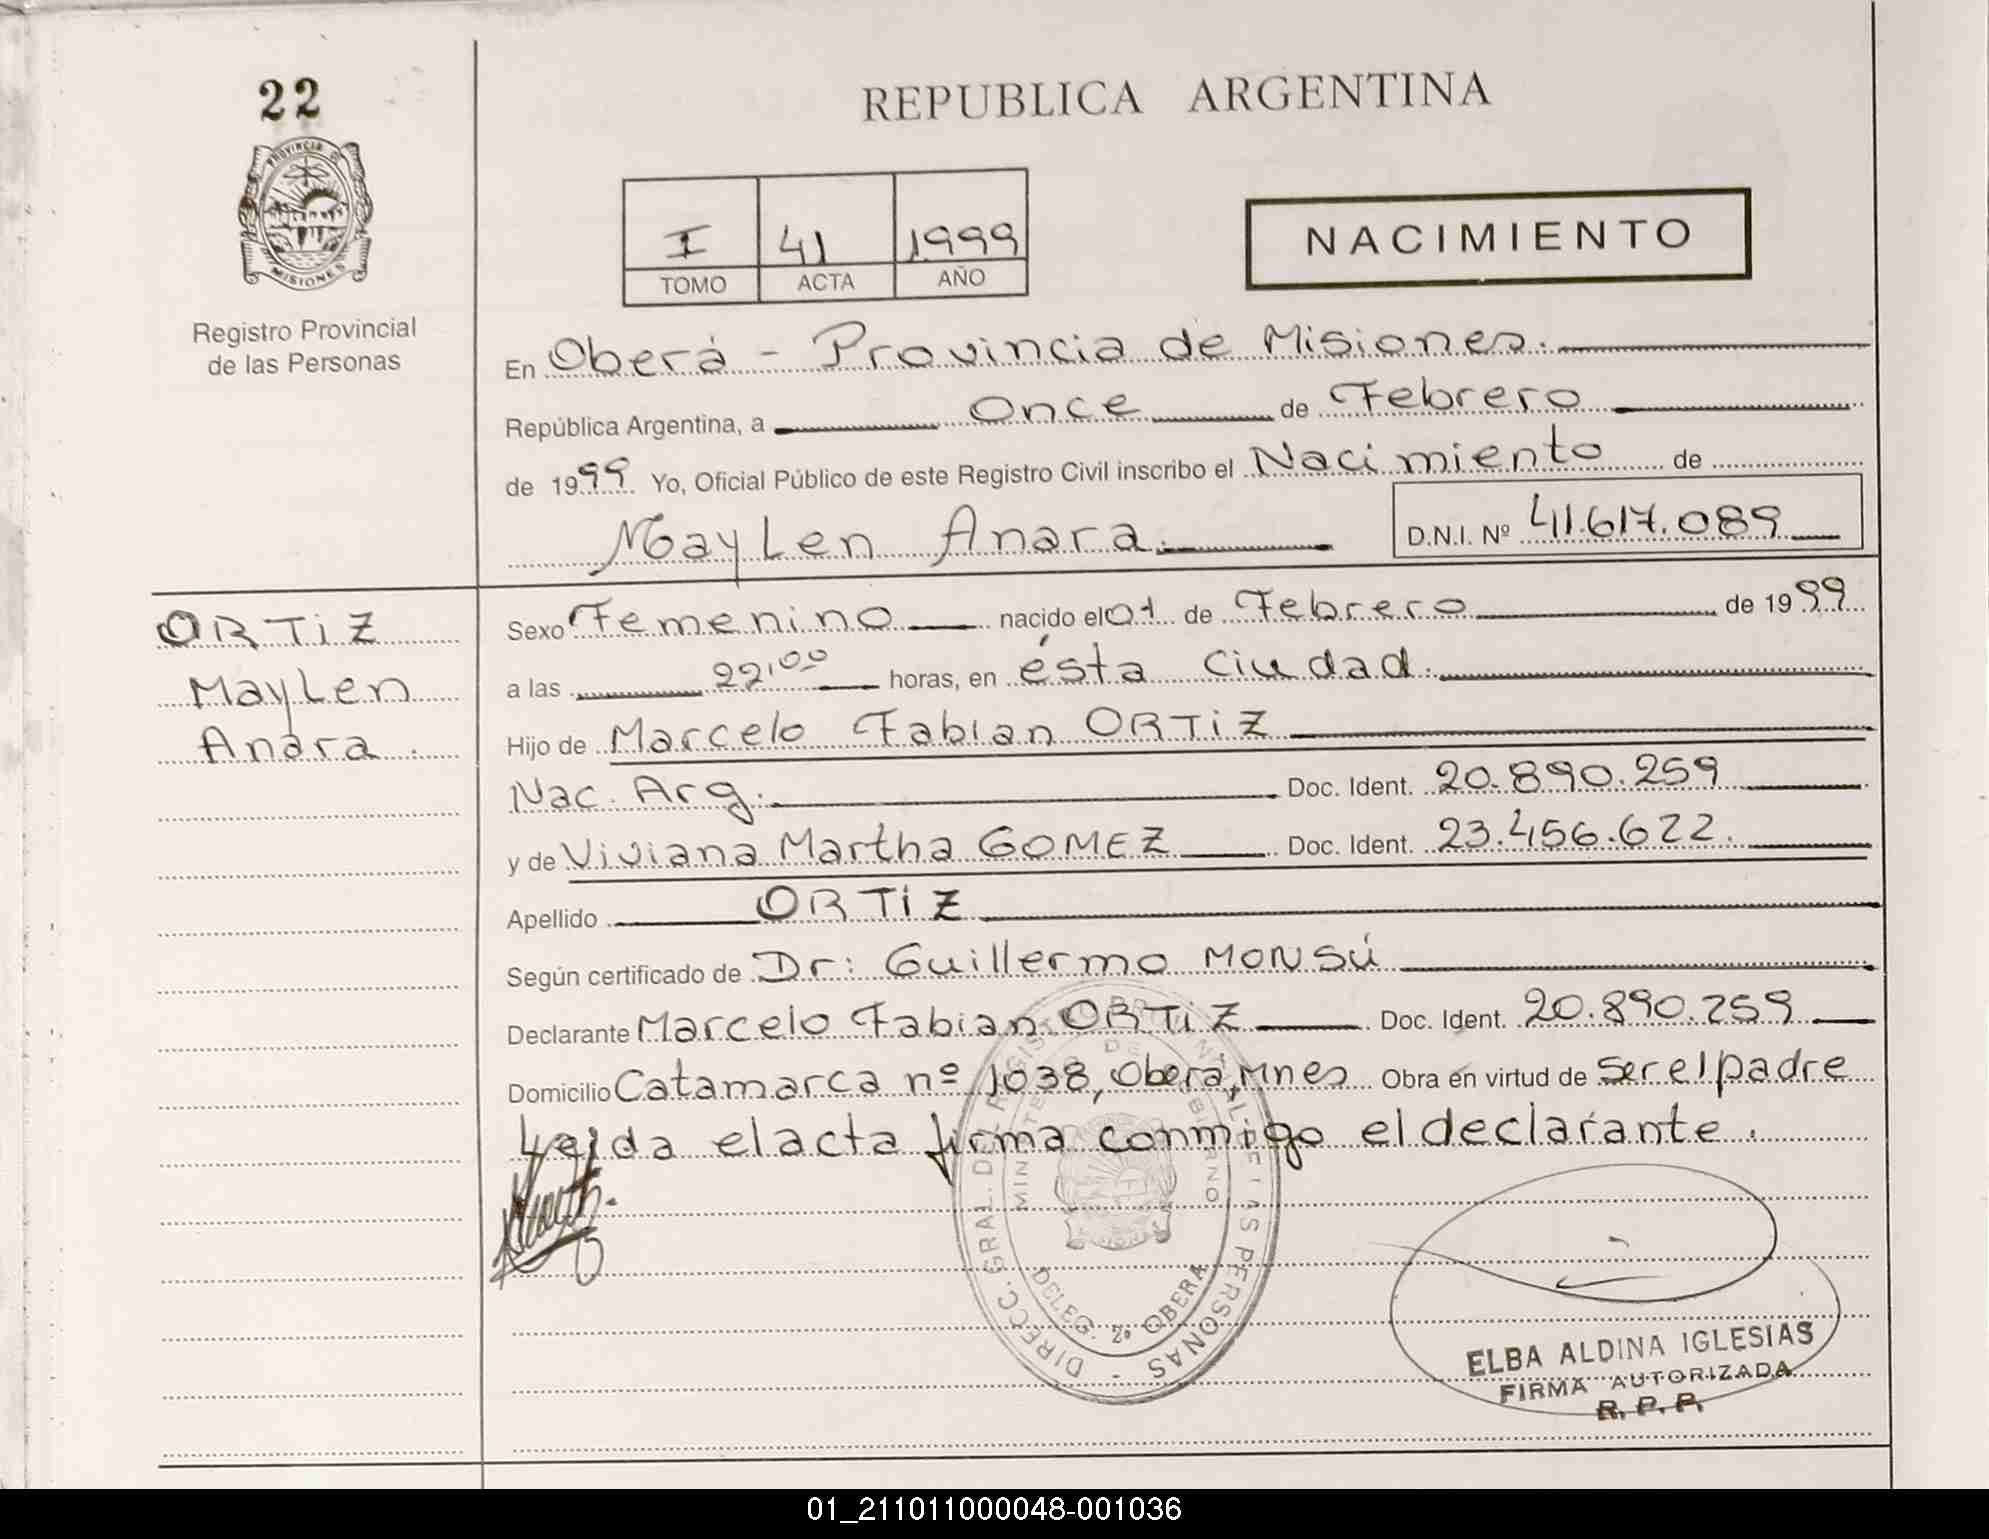 22
PROVINCIA DE
MISIONES
Registro Provincial
de las Personas
REPUBLICA ARGENTINA
I 41 1999
TOMO ACTA AÑO
NACIMIENTO
En Oberá - Provincia de Misiones.
República Argentina, a Once de Febrero
de 1999 Yo, Oficial Público de este Registro Civil inscribo el Nacimiento de
Maylen Anara. D.N.I. Nº 41.617.089
ORTIZ
Maylen
Anara.
Sexo Femenino nacido el 01 de Febrero de 1999
a las 22,00 horas, en ésta Ciudad.
Hijo de Marcelo Fabian ORTIZ
Nac. Arg. Doc. Ident. 20.890.259
y de Viviana Martha GOMEZ Doc. Ident. 23.456.622.
Apellido ORTIZ
Según certificado de Dr: Guillermo MONSÚ
Declarante Marcelo Fabian ORTIZ Doc. Ident. 20.890.259
Domicilio Catamarca nº 1038, Oberá, Mnes Obra en virtud de ser el padre
Leida el acta firma conmigo el declarante.
DIRECC. GRAL. DEL REGISTRO PROVINCIAL DE LAS PERSONAS
MINISTERIO DE GOBIERNO
DELEG. 2º OBERA
ELBA ALDINA IGLESIAS
FIRMA AUTORIZADA
R. P. P.
01_211011000048-001036